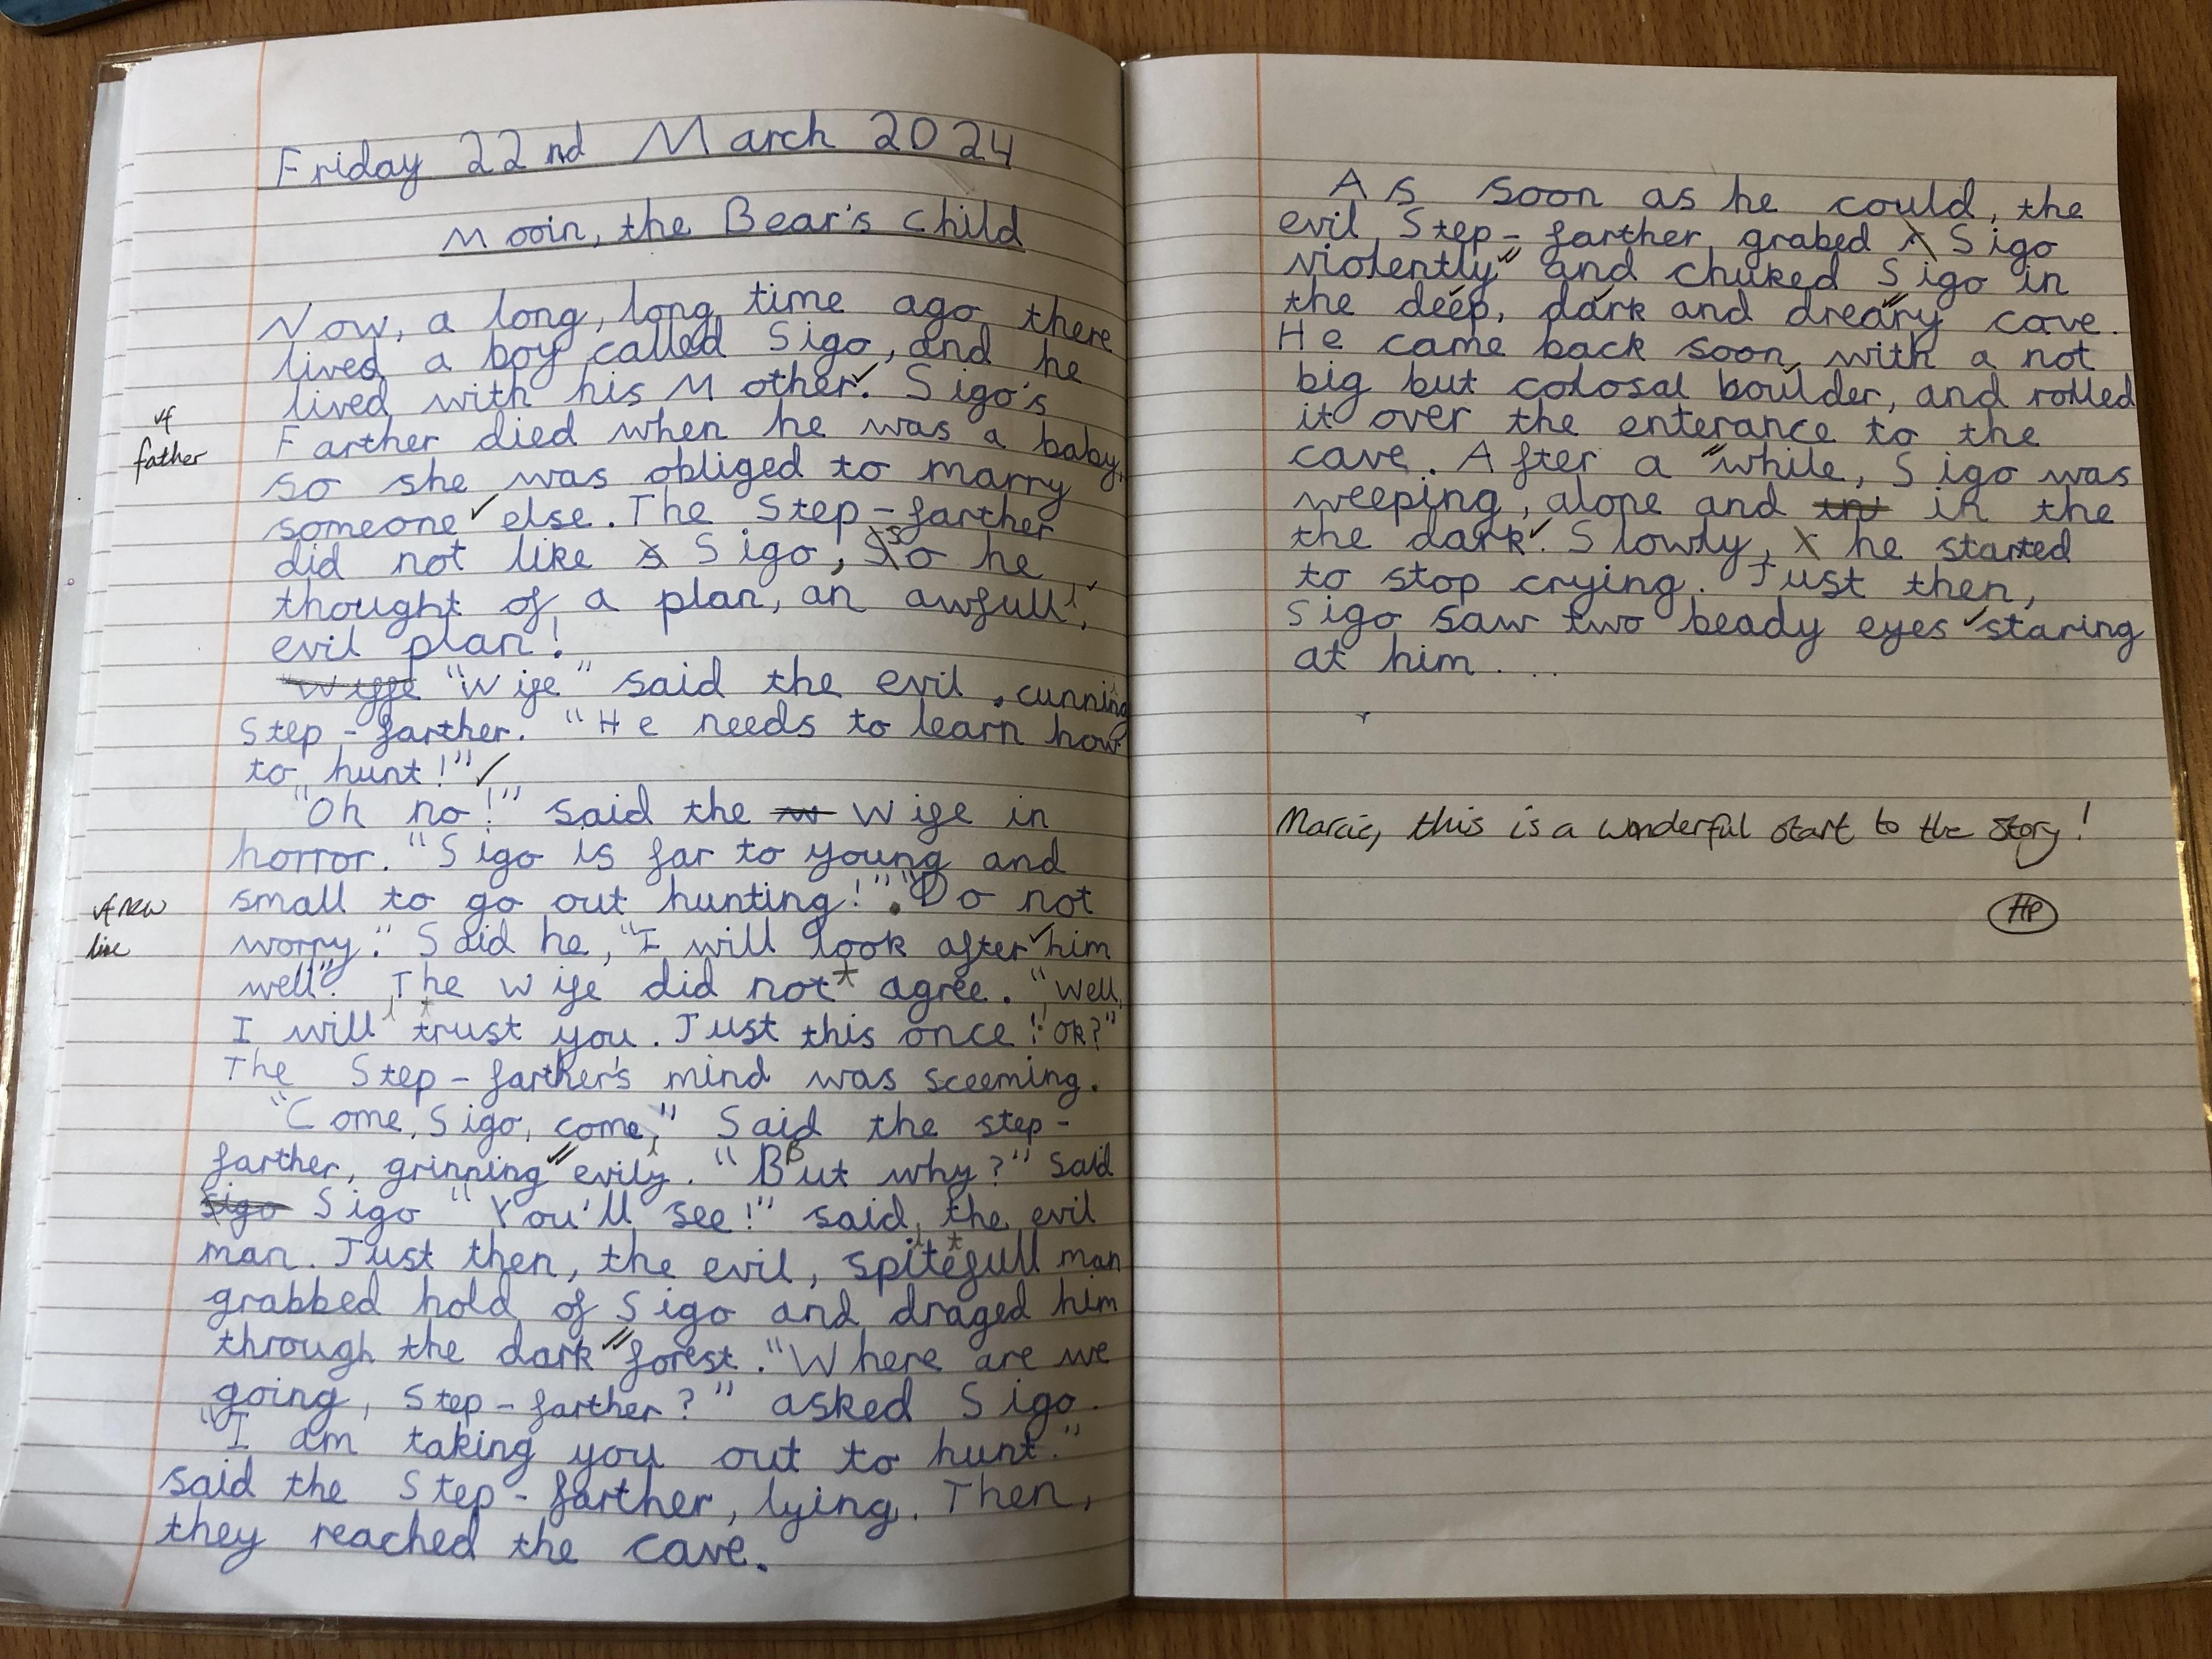 Friday 22nd March 2024
Mooin, the Bear's child
Now, a long, long time ago there
lived a boy called Sigo, and he
lived with his Mother. Sigo's
vf
father
Farther died when he was a baby,
so she was obliged to marry
someone else. The Step-farther
did not like Sigo, so he
thought of a plan, an awfull,
evil plan!
"Wiffe "Wife" said the evil, cunning
Step-farther. "He needs to learn how
to hunt!"
"Oh no!" said the w Wife in
horror. "Sigo is far to young and
small to go out hunting!". "Do not
vf new
line
worry." Said he, "I will look after him
well". The Wife did not agree. "Well,
I will trust you. Just this once! Ok?"
The Step-farther's mind was sceeming.
"Come, Sigo, come," Said the step-
farther, grinning evily. "But why?" said
sigo Sigo "You'll see!" said, the evil
man. Just then, the evil, spitefull man
grabbed hold of Sigo and draged him
through the dark forest. "Where are we
going, Step-farther?" asked Sigo.
"I am taking you out to hunt."
said the Step-farther, lying. Then,
they reached the cave.
As soon as he could, the
evil Step-farther grabed Sigo
violently and chuked Sigo in
the deep, dark and dreary cave.
He came back soon with a not
big but colosal boulder, and rolled
it over the enterance to the
cave. After a while, Sigo was
weeping, alone and in in the
the dark. Slowly, he started
to stop crying. Just then,
Sigo saw two beady eyes staring
at him...
Marcie, this is a wonderful start to the story!
HP